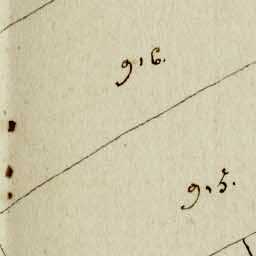 916.
915.